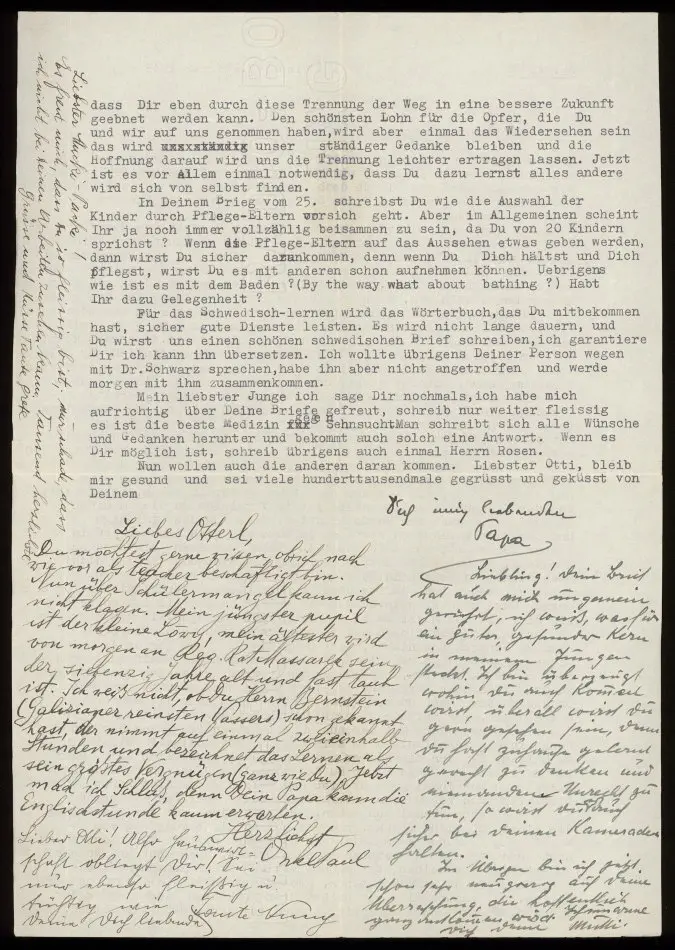 dass Dir eben durch diese Trennung der Weg in eine bessere Zukunft
geebnet werden kann. Den schönsten Lohn für die Opfer, die Du
und wir auf uns genommen haben,wird aber einmal das Wiedersehen sein
das wird unser ständiger Gedanke bleiben und die
Hoffnung darauf wird uns die Trennung leichter ertragen lassen. Jetzt
ist es vor Allem einmal notwendig, dass Du dazu lernst alles andere
wird sich von selbst finden.
In Deinem Brief vom 25. schreibst Du wie die Auswahl der
Kinder durch Pflege-Eltern vorsich geht. Aber im Allgemeinen scheint
Ihr ja noch immer vollzählig beisammen zu sein, da Du von 20 Kindern
sprichst ? Wenn die Pflege-Eltern auf das Aussehen etwas geben werden,
dann wirst Du sicher darankommen, denn wenn Du Dich hältst und Dich
pflegst, wirst Du es mit anderen schon aufnehmen können. Uebrigens
wie ist es mit dem Baden ?(By the way what about bathing ?) Habt
Ihr dazu Gelegenheit ?
Für das Schwedisch-lernen wird das Wörterbuch,das Du mitbekommen
hast, sicher gute Dienste leisten. Es wird nicht lange dauern, und
Du wirst uns einen schönen schwedischen Brief schreiben,ich garantiere
Dir ich kann ihn übersetzen. Ich wollte übrigens Deiner Person wegen
mit Dr.Schwarz sprechen,habe ihn aber nicht angetroffen und werde
morgen mit ihm zusammenkommen.
Mein liebster Junge ich sage Dir nochmals,ich habe mich
aufrichtig über Deine Briefe gefreut, schreib nur weiter fleissig
es ist die beste Medizin gegen SehnsuchtMan schreibt sich alle Wünsche
und Gedanken herunter und bekommt auch solch eine Antwort. Wenn es
Dir möglich ist, schreib übrigens auch einmal Herrn Rosen.
Nun wollen auch die anderen daran kommen. Liebster Otti, bleib
mir gesund und sei viele hunderttausendmale gegrüsst und geküsst von
Deinem
Dich innig liebenden
Papa
Liebes Otterl,
Du möchtest gerne wissen, ob ich nach
wie vor als teacher beschäftigt bin.
Nun über Schülermangel kann ich
nicht klagen. Mein jüngster pupil
ist der kleine Löwy, mein ältester wird
von morgen an Reg. Rat Massarek sein,
der siebenzig Jahre alt und fast taub
ist. Ich weiß nicht, ob Du Herrn Bernstein
(Galizianer reinsten Wassers) schon gekannt
hast, der nimmt auf einmal zweieinhalb
Stunden und bezeichnet das Lernen als
sein größtes Vergnügen (ganz wie Du). Jetzt
mach ich Schluß, denn Dein Papa kann die
Englischstunde kaum erwarten.
Herzlichst
Onkel Paul
Lieber Otti! Also
schaft obliegt Dir! Sei
nur ebenso fleißig u.
tüchtig wie
Deine Dich liebende
Tante
Liebling! Dein Brief
hat auch mich ungemein
gerührt, ich weiß, was für
ein guter, gesunder Kern
in meinem Jungen
steckt. Ich bin überzeugt
wohin du auch kommen
wirst, überall wirst du
gern gesehen sein, denn
du hast zuhause gelernt
gerecht zu denken und
niemandem Unrecht zu
tun, so wirst du auch
sicher bei deinen Kameraden
halten.
Im Übrigen bin ich jetzt
schon sehr neugierig auf deine
Überraschung, die hoffentlich
wird
dich deine Mutti.
Es freut mich, dass Du so fleissig bist, nur schade, dass
ich nicht bei deinen Arbeiten zusehen kann. Tausend herzlichste
Grüsse und Küsse Tante Grete